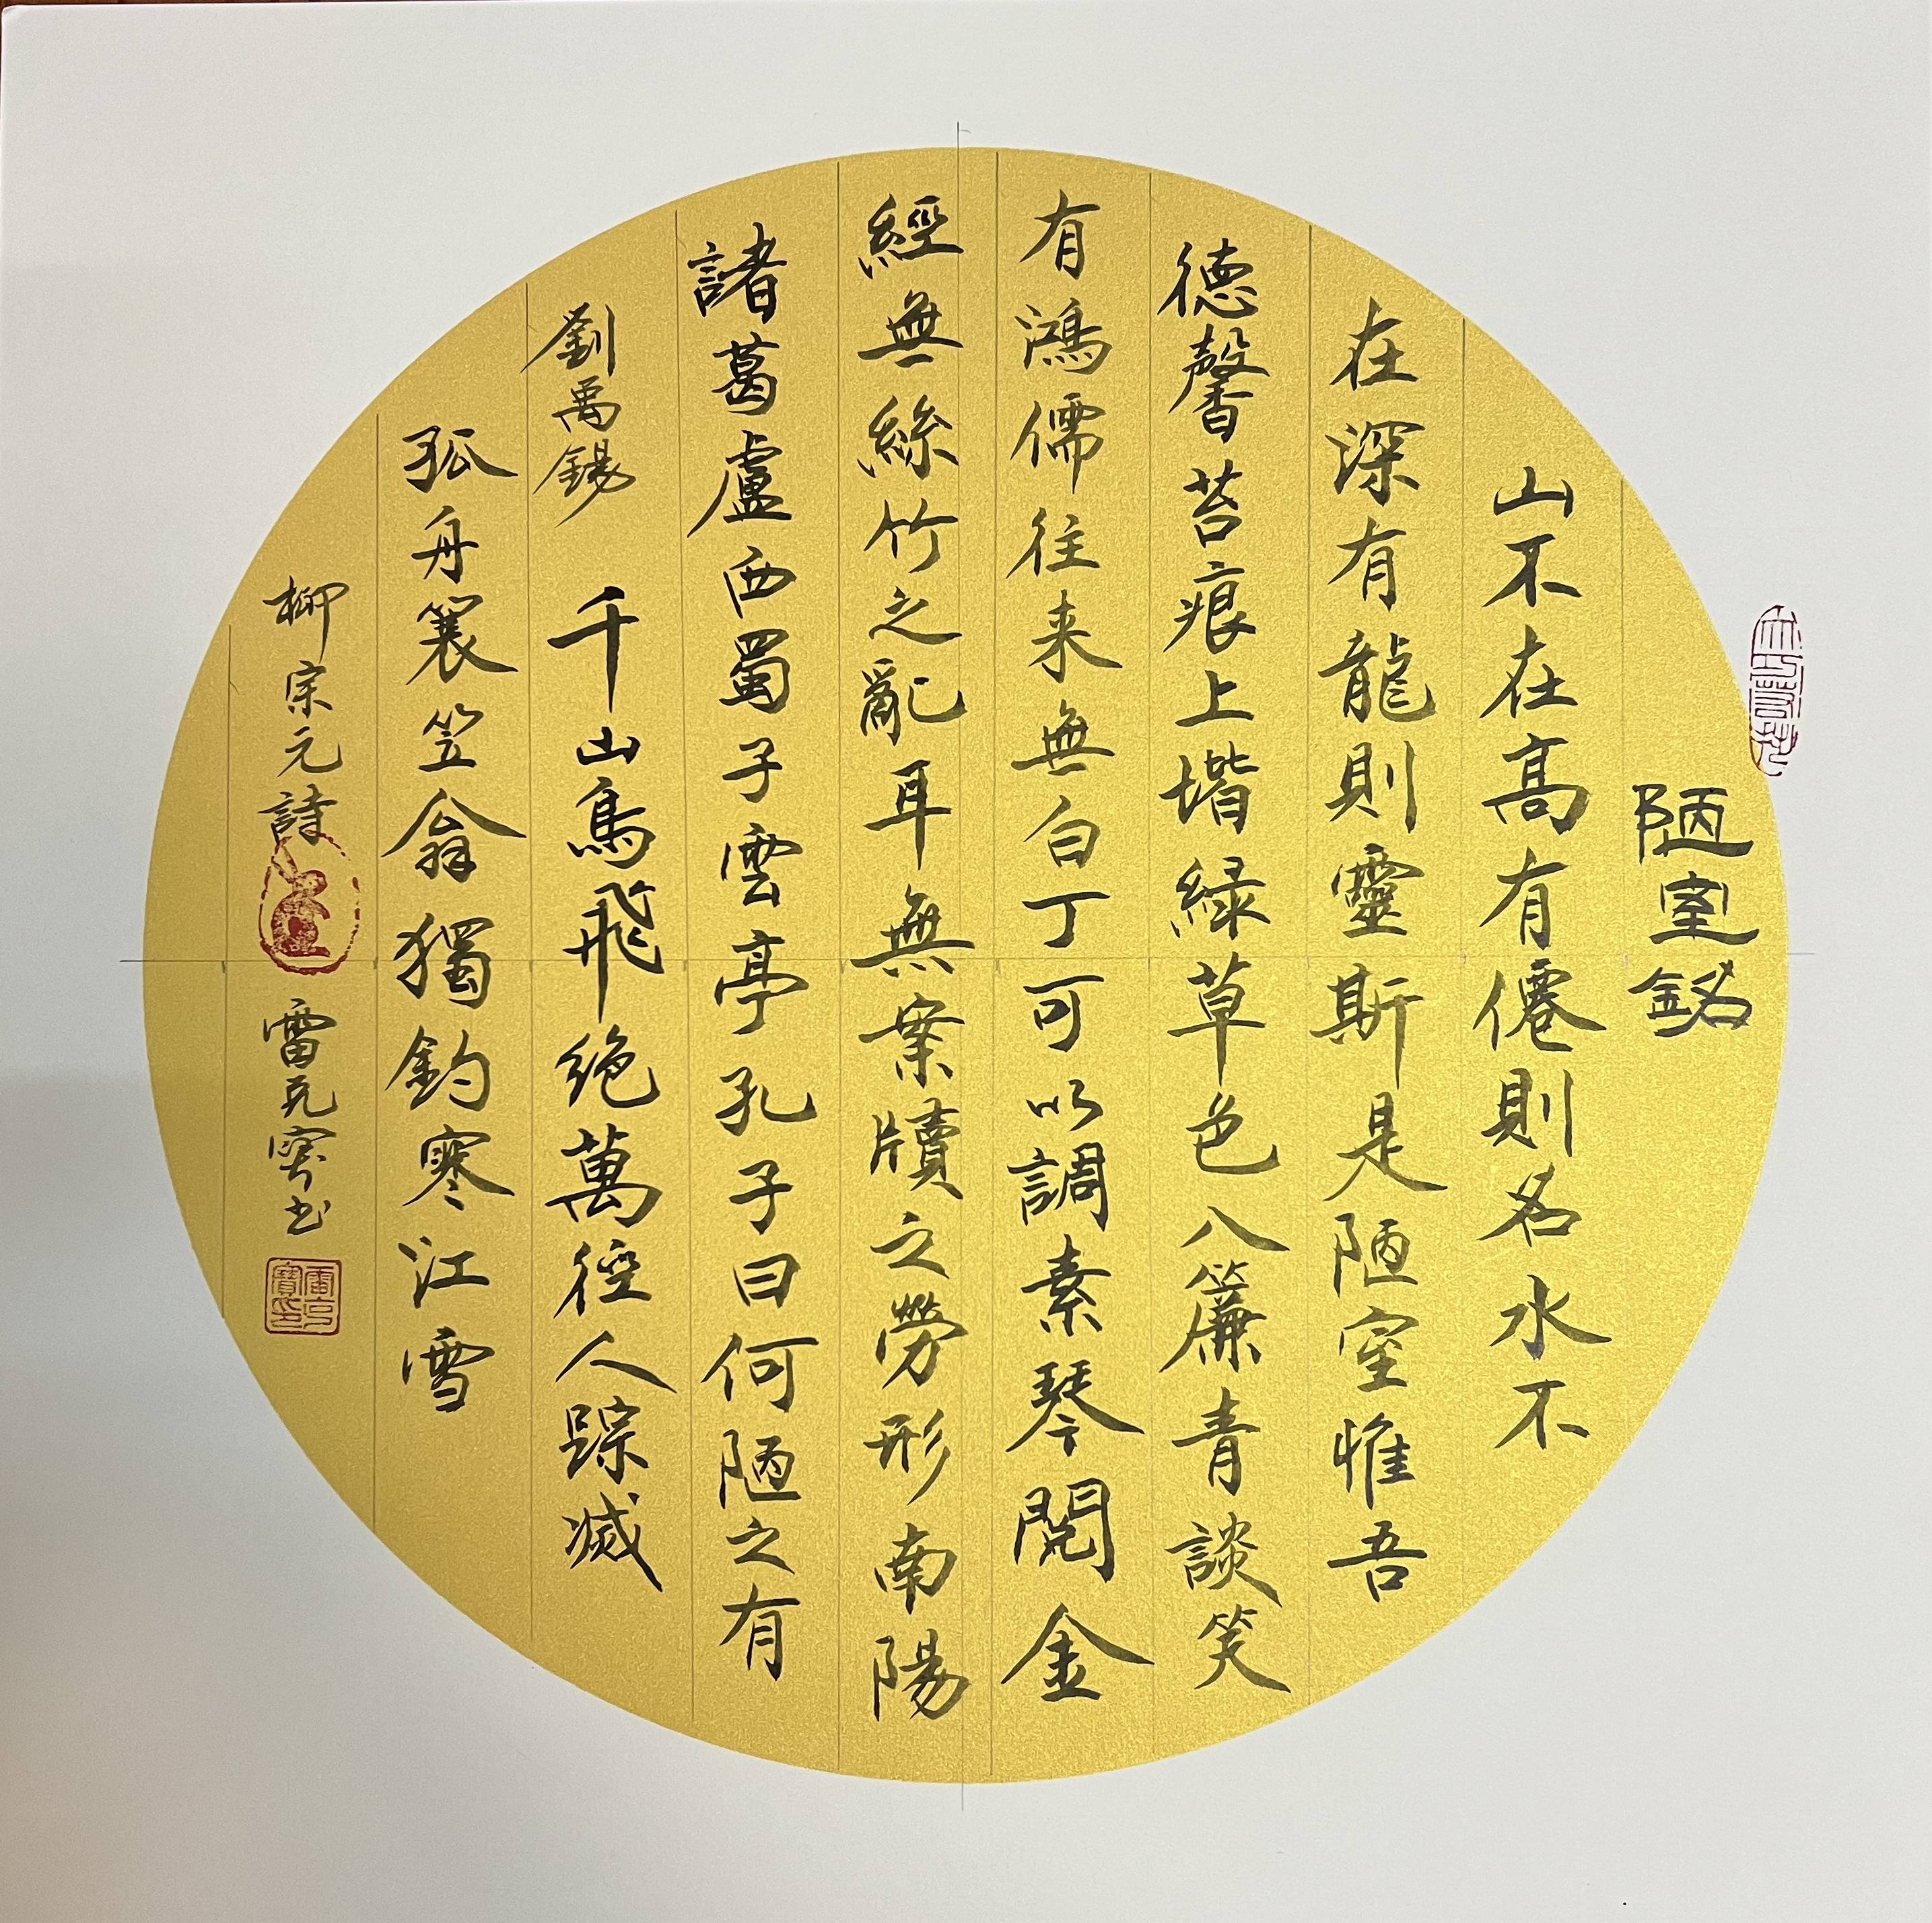 陋室銘
山不在高有僊則名水不
在深有龍則靈斯是陋室惟吾
德馨苔痕上堦緑草色入簾青談笑
有鴻儒往来無白丁可以調素琴閱金
經無絲竹之亂耳無案牘之勞形南陽
諸葛盧西蜀子雲亭孔子曰何陋之有
劉禹錫 千山鳥飛絶萬徑人踪滅
孤舟簑笠翁獨釣寒江雪
柳宗元詩 雷